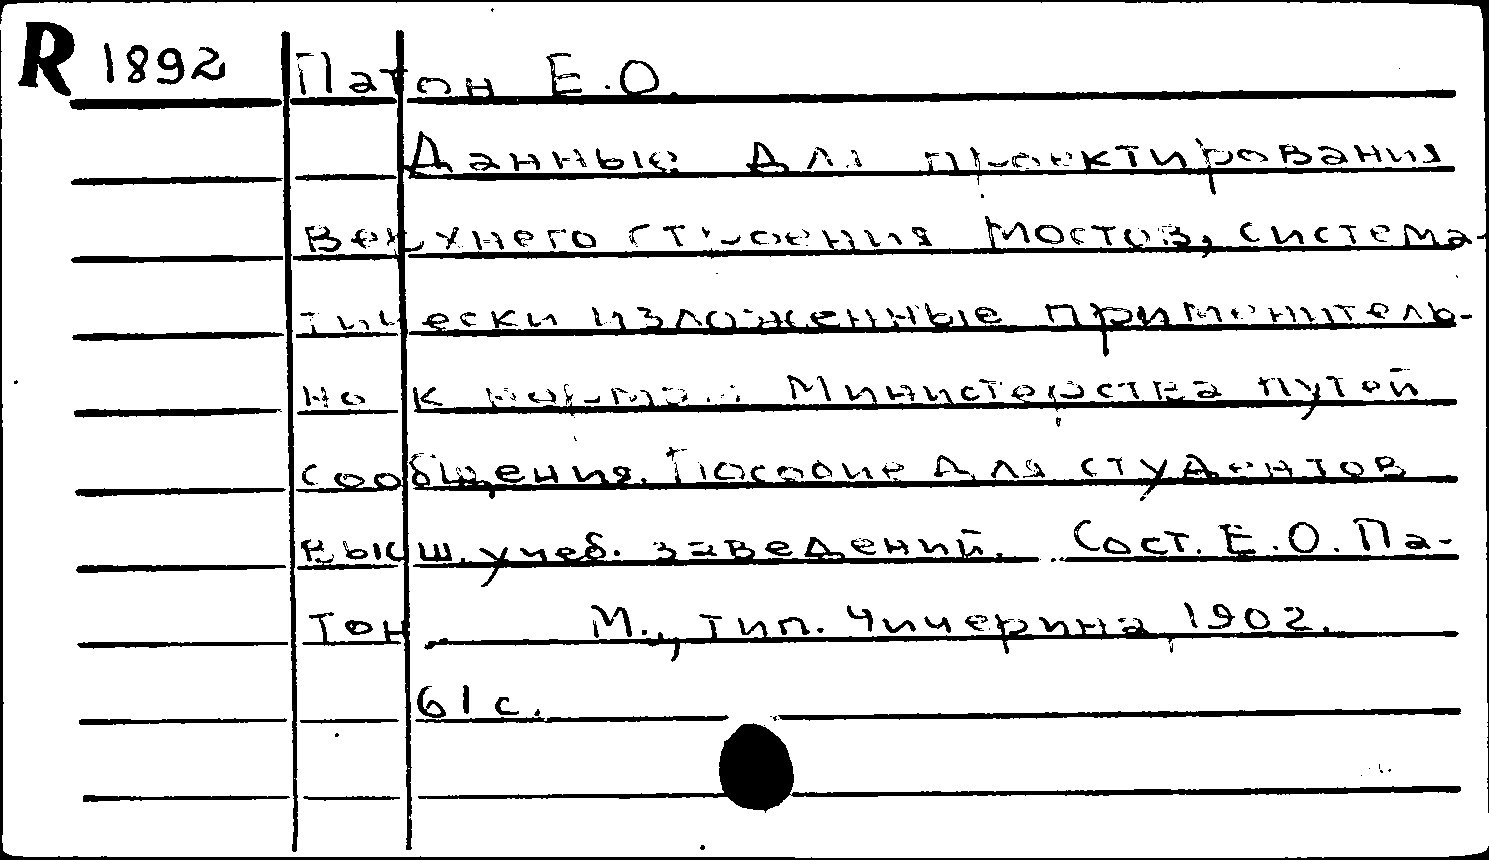 R 1892 Патон Е.О.
Данные для проектирования
верхнего строения мостов, система-
тически изложенные применитель-
но к нормам Министерства путей
сообщения. Пособие для студентов
высш. учеб. заведений. Сост. Е.О. Па-
тон. М., тип. Чичерина, 1902.
61 с.